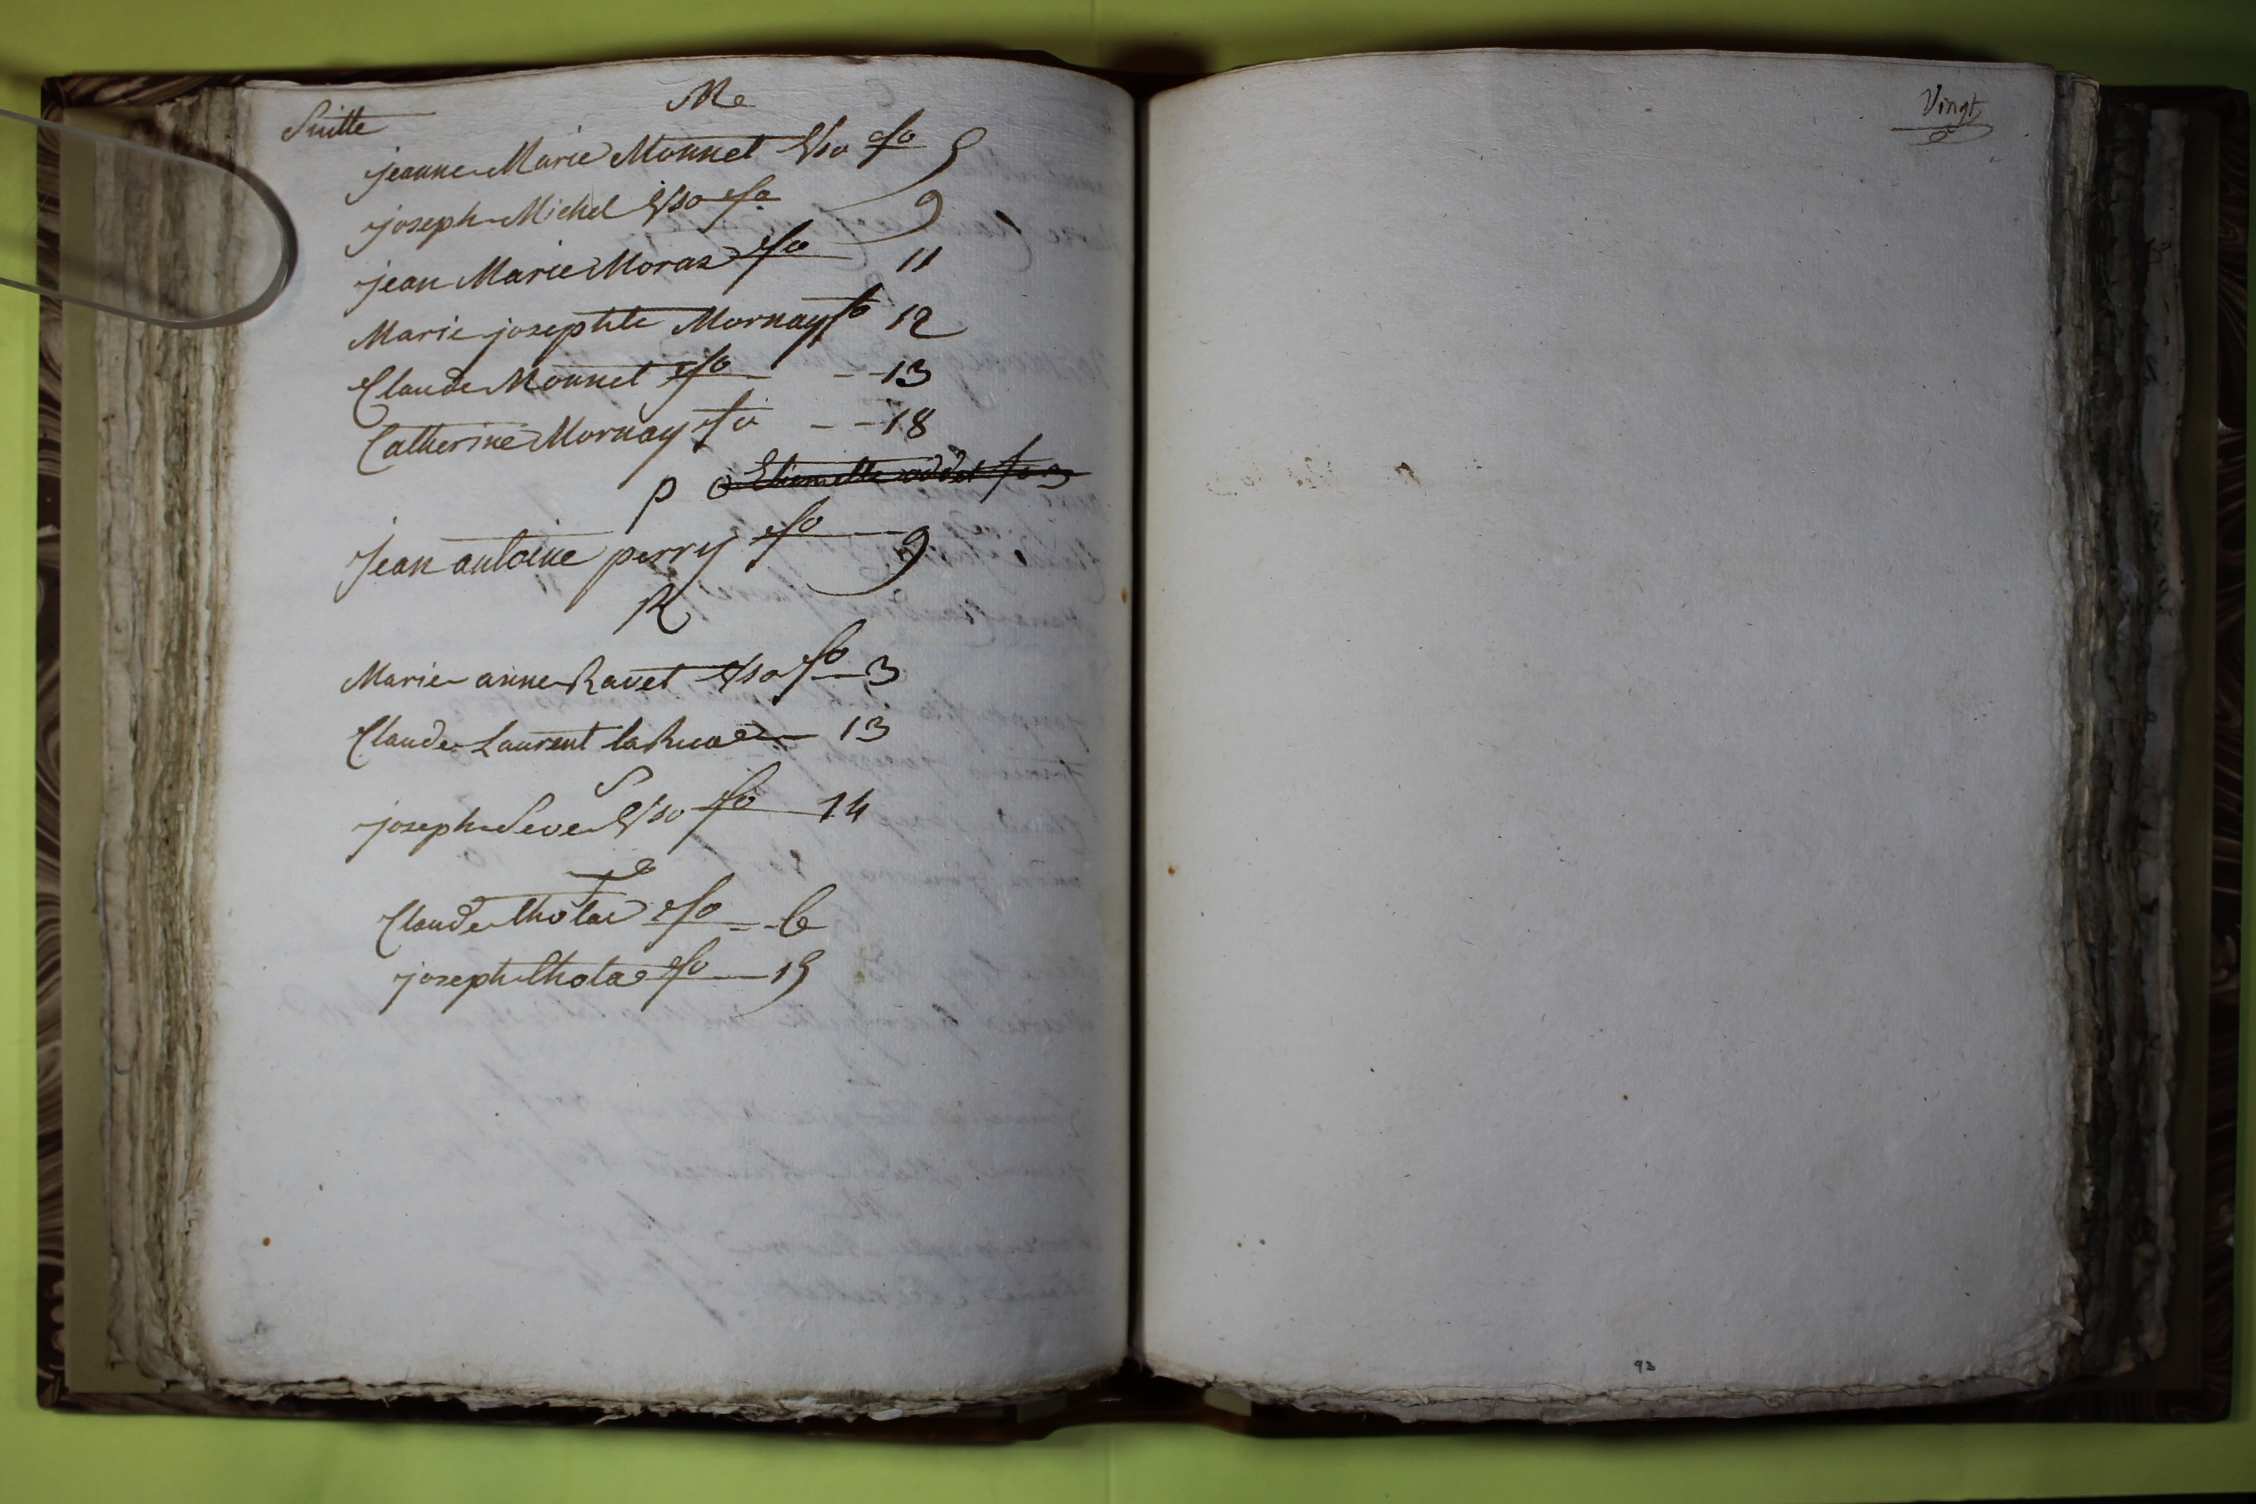 Suitte
M
jeanne Marie Monnet Vso fo 5
joseph Michel Vso fo 9
jean Marie Moraz fo 11
Marie josephte Mornay fo 12
Claude Monnet fo -- 13
Catherine Mornay fo -- 18
P Etiennette oddet fo 3
Jean antoine perry fo 9
R
Marie anne Ravet Vso fo 3
Claude Laurent laRuaz 13
S
joseph Seve Vso fo 14
T
Claude tholas fo 6
joseph thola fo 15
Vingt
93